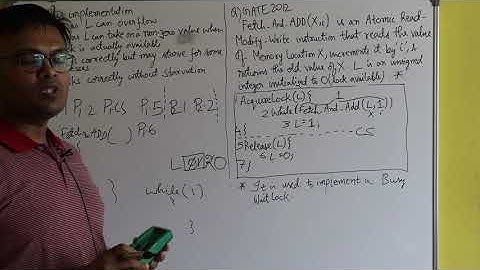 implementation
L can overflow
L can take on a non-zero value when
lock is actually available
correctly but may starve for some
works correctly without starvation
P1 2 P1 CS P1 5 P2 1 P2 2
Fetch_n_ADD( ) P1 6
L 0 1 R 0
} while(1)
}
Q) GATE 2012
Fetch_And_ADD(X,i) is an Atomic Read-
Modify-Write instruction that reads the value
of Memory Location X, increments it by 'i', &
returns the old value of X. L is an unsigned
integer initialized to 0 (lock available) *
AcquireLock(L){ 1
2 While(Fetch_And_Add(L,1))
3 L=1;
4} CS
5 Release(L){
6 L=0;
7}
* It is used to implement a Busy
Wait lock.